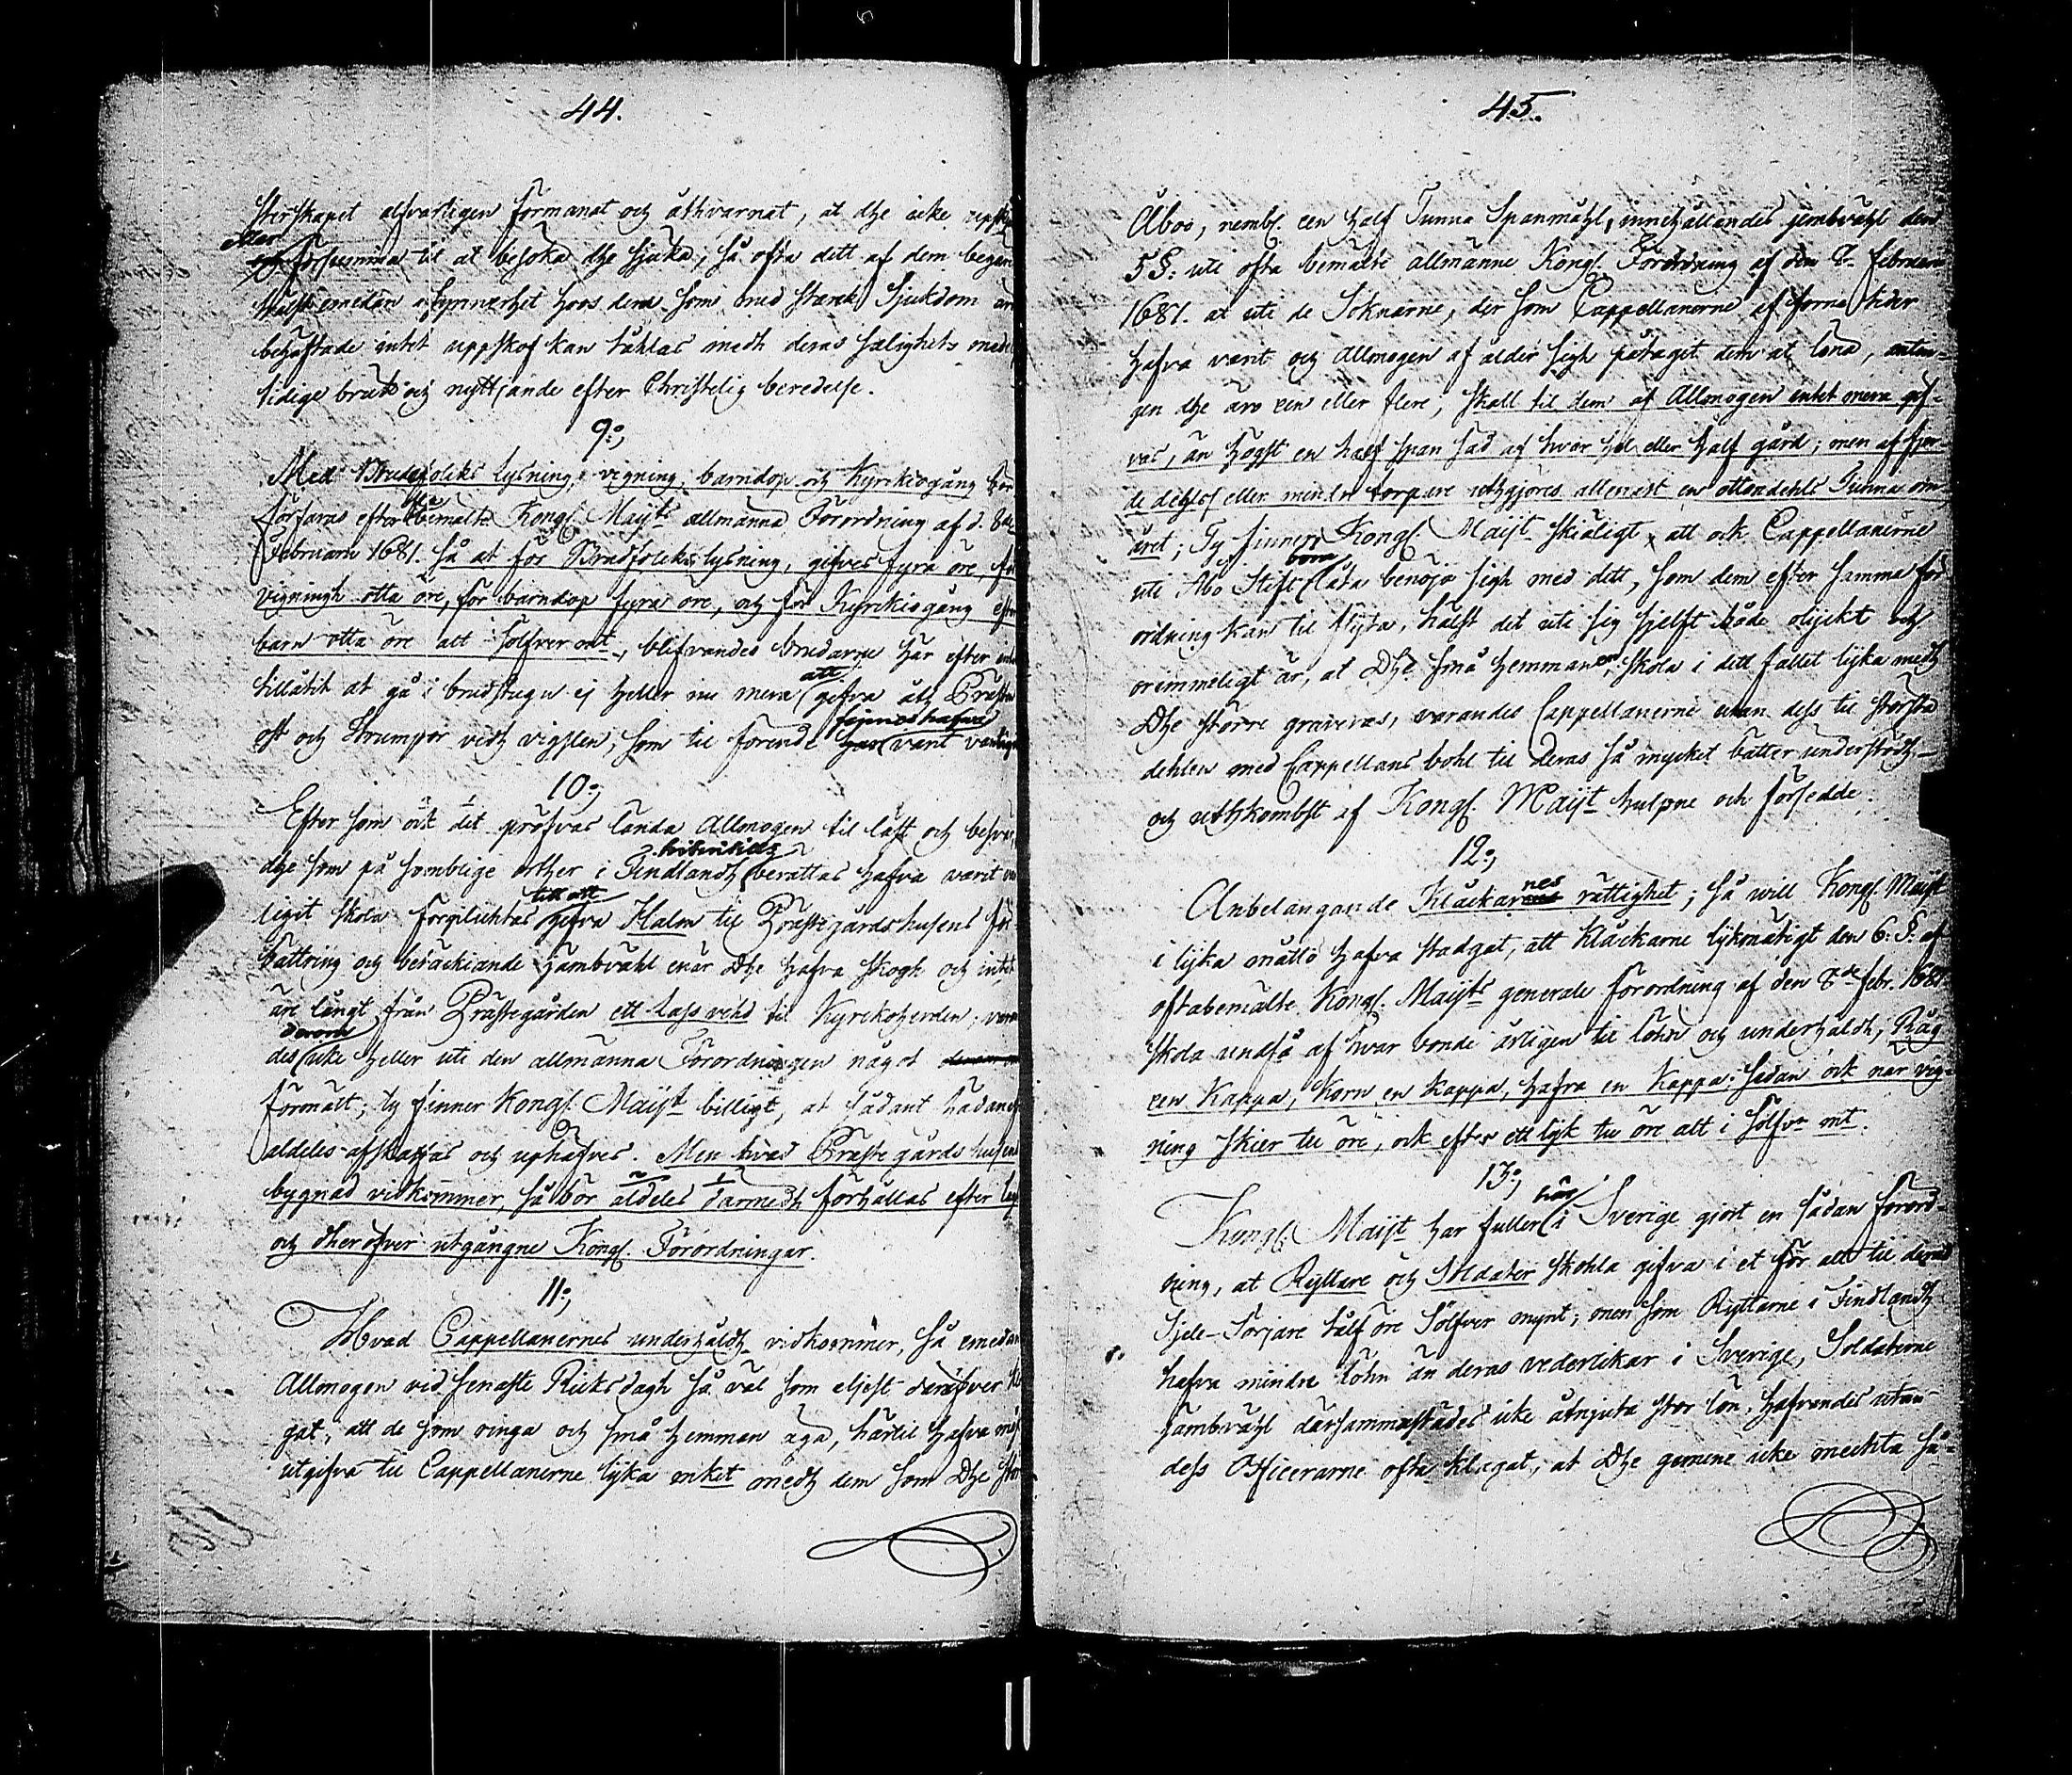 44.
sterskapet alfvarligen förmanat och åthvarnat, at dhe icke
eller
försumma til at besöka dhe sjuka, så ofta dett af dem
hälst emedan synnerhet hoos dem som med starck Sjukdom
behäftade intet uppskof kan tåhlas medh deras salighets
tidige bruk och nyttjande efter Christelig beredelse.
9:,
Med Brudefolkets lysning, vigning, barndop och Kyrkiogång
förfaras efter bemälte Kongl. Maijts allmänna Förordning af d. 8de
Februarii 1681. Så at för Brudfolcks lysning, gifves fyra öre
Vigningh otta öre, för barndop fyra öre, och för Kyrckiogång
barn otta öre alt Solfver mt., blifvandes brudarne här efter
att
tillåtit at gå i brudstugu ej heller nu mera gifva åth
ost och Strumpor vidh vigslen, som til förende varit
10:,
Efter som ock det pröfvas lända Allmogen til last och
hitintils
dhe som på somblige orther i Findlandh berättas hafva varit
till att
ligit skola förplichtas gifva Halm til Prästegårdshusens
bättring och betäckiande jämbväl enär dhe hafva skogh och
äre långt från Prästegården ett lass vehd til Kyrckoherden,
derom
des icke heller uti den allmänna Förordningen något
förmält; ty finner Kongl. Maijt billigt, at sådant
aldeles afskaffas och uphäfves. Men hvad Prästegårdshusens
bygnad vidkommer, så bör aldeles därmedh förhållas efter
och dheröfver utgångne Kongl. Förordningar.
11:,
Hvad Cappellanernes underhåldh vidkommer, så
Allmogen vid senaste Ricksdagh så väl som eljest deröfver
gat, att de som ringa och små hemman äga, härtil hafva
utgifva til Cappellanerne lijka medh dem som Dhe
45.
Åboo, nembl. een half Tunna Spanmåhl, innehållandes jembväl den
5 §: uti ofta bemälte allmänne Kongl. Förordning af den 8 Februarii
1681. at uti de Soknarne, der som Cappellanerne af forna tider
hafva varit och Allmogen af ålder sigh påtagit dem at löna, antin-
gen dhe äro een eller flere, skall til dem af Allmogen intet mera gif-
vas, än högst en half span säd af hvar hel eller half gård; men af fjer-
de dehlof eller mindre torpare uthgjöres allenast en ottondehls Tunna om
året; Ty finner Kongl. Maijt skiäligt, att ock Cappellanerne
böra
uti Åbo Stift låta benöja sigh med dett, som dem efter samma för-
ordning kan til flyta, hälst det uti sig sjelft både olijckt och
orimmeligt är, at Dhe små hemmanen skola i dett fallet lijka medh
Dhe större graveras, varandes Cappellanerne utan dess til största
dehlen med Cappellans bohl til deras så mycket bätter understödh
och uthkombst af Kongl. Maijt hulpne och försedde.
12:,
Anbelangande Klåckarnes rättighet; så will Kongl. Maijt
i lijka måtto hafva stadgat, att Klåckarne lijkmätigt den 6: §: af
oftabemälte Kongl. Maijts generale förordning af den 8de febr. 1681.
skola undfå af hvar bonde årligen til löhn och underhåldh, Råg
een Kappa, Korn en Kappa, hafra en Kappa: sedan ock när vig-
ning skier tu öre, ock efter ett lijk tu öre alt i Solfvr mt.
13:,
här
Kongl. Maijt har fuller i Sverige giort en sådan förord-
ning, at Ryttare och Soldater skohla gifva i et för alt til deras
Själe-Sörjare tålf öre Solfver mynt; men som Ryttarne i Findlandh
hafva mindre löhn än deras vederlikar i Sverige, Soldaterne
jämbväl därsammastädes icke åtnjuta stor lön, hafvandes utan
dess Officerarne ofta klagat, at Dhe gemene icke mechta så-